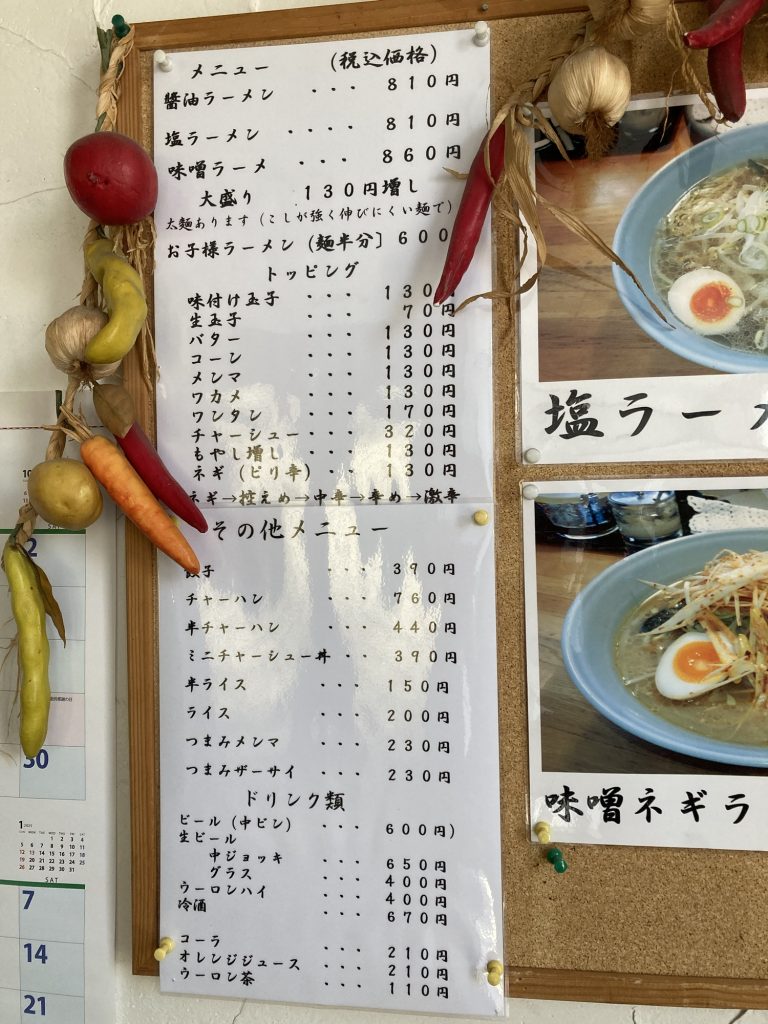 メニュー （税込価格）
醬油ラーメン ・・・ ８１０円
塩ラーメン ・・・・ ８１０円
味噌ラーメ ・・・ ８６０円
大盛り １３０円増し
太麺あります（こしが強く伸びにくい麺で）
お子様ラーメン（麺半分〕６００
トッピング
味付け玉子 ・・・ １３０円
生玉子 ・・・ ７０円
バター ・・・ １３０円
コーン ・・・ １３０円
メンマ ・・・ １３０円
ワカメ ・・・ １３０円
ワンタン ・・・ １７０円
チャーシュー ・・・ ３２０円
もやし増し ・・・ １３０円
ネギ（ピリ辛） ・・・ １３０円
ネギ→控えめ→中辛→辛め→激辛
その他メニュー
餃子 ・・・ ３９０円
チャーハン ・・・ ７６０円
半チャーハン ・・・ ４４０円
ミニチャーシュー丼 ・・・ ３９０円
半ライス ・・・ １５０円
ライス ・・・ ２００円
つまみメンマ ・・・ ２３０円
つまみザーサイ ・・・ ２３０円
ドリンク類
ビール（中ビン） ・・・ ６００円）
生ビール
中ジョッキ ・・・ ６５０円
グラス ・・・ ４００円
ウーロンハイ ・・・ ４００円
冷酒 ・・・ ６７０円
コーラ ・・・ ２１０円
オレンジジュース ・・・ ２１０円
ウーロン茶 ・・・ １１０円
塩ラーメ
味噌ネギラ
10
2
30
1 2025
SUN MON TUE WED THU FRI SAT
1 2 3 4
5 6 7 8 9 10 11
12 13 14 15 16 17 18
19 20 21 22 23 24 25
26 27 28 29 30 31
SAT
7
14
21